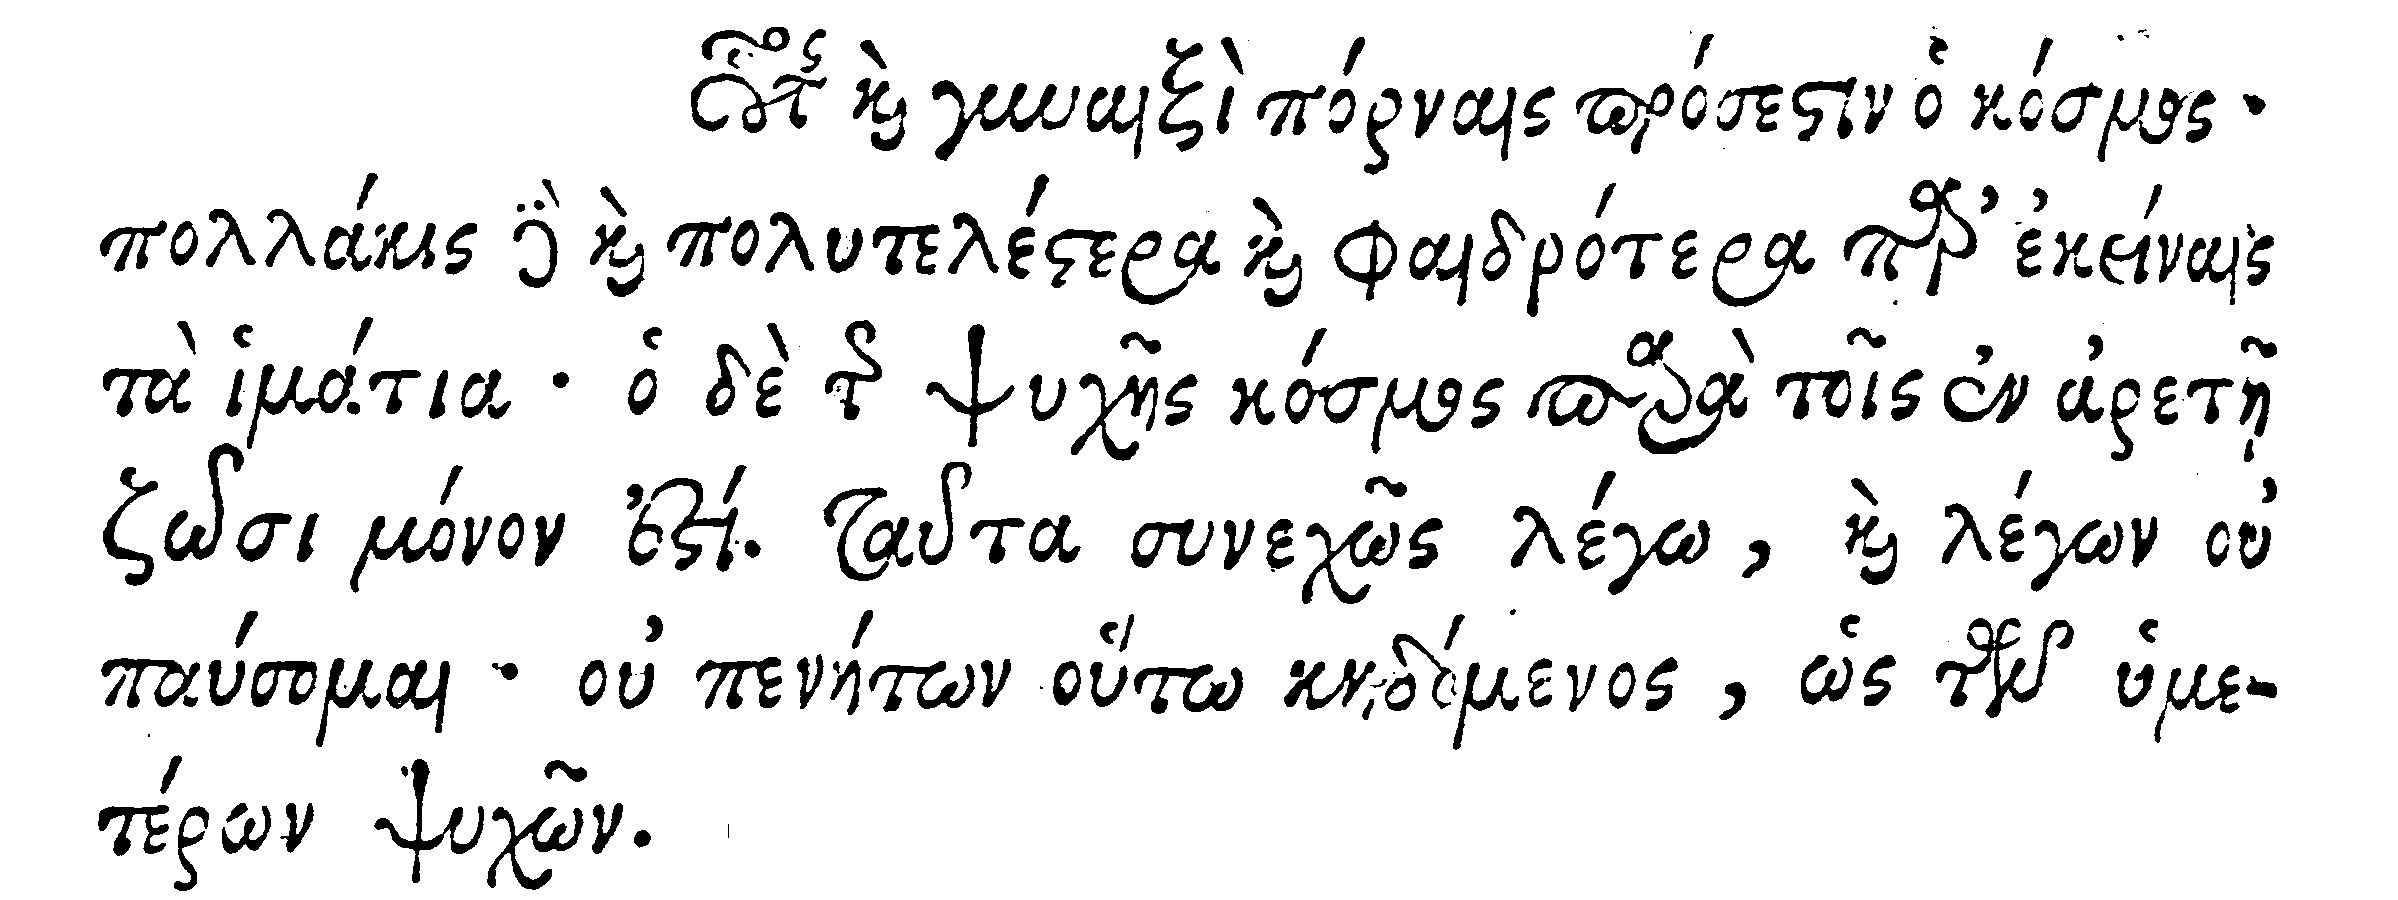 οὗτος καὶ γυναιξὶ πόρναις πρόσεστιν ὁ κόσμος·
πολλάκις δὲ καὶ πολυτελέστερα καὶ φαιδρότερα παρ’ ἐκείναις
τὰ ἱμάτια· ὁ δὲ τῆς ψυχῆς κόσμος παρὰ τοῖς ἐν ἀρετῇ
ζῶσι μόνον ἐστί. Ταῦτα συνεχῶς λέγω, καὶ λέγων οὐ
παύσομαι· οὐ πενήτων οὕτω κηδόμενος, ὡς τῶν ὑμε-
τέρων ψυχῶν.